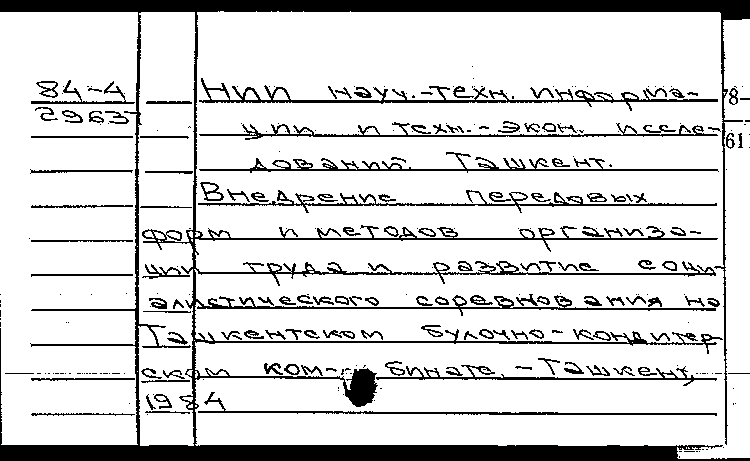 84-4
29637
НИИ науч.-техн. информа-
ции и техн.-экон. иссле-
дований. Ташкент.
Внедрение передовых
форм и методов организа-
ции труда и развитие соци-
алистического соревнования на
Ташкентском булочно-кондитер
ском ком- бинате. - Ташкент,
1984
78-
611